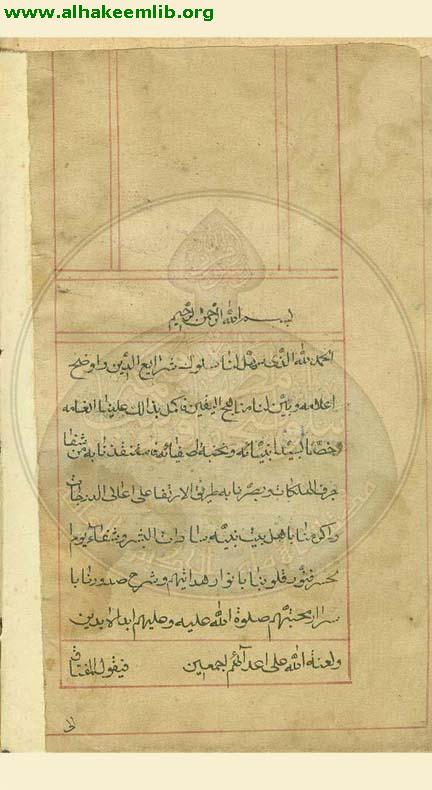 www.alhakeemlib.org
بسم الله الرحمن الرحيم
الحمد لله الذى سهل لنا سلوك شرايع الدين واوضح
اعلامه وبين لنا مناهج اليقين فاكمل بذالك علينا انعامه
وخصنا بسيد انبيائه ونخبة اصفيائه فاستنقذنا به من شفا
جرف الهلكات وبصرنا به طريق الارتقا على اعالى الدرجات
واكرمنا باهل بيت نبيه سادات البشر وشفعاء يوم
محشر فنور قلوبنا بانوار هدايتهم وشرح صدورنا با
سرار محبتهم صلوة الله عليه وعليهم ابد الابدين
ولعنة الله على اعدآئهم اجمعين فيقول المفتاق
الى